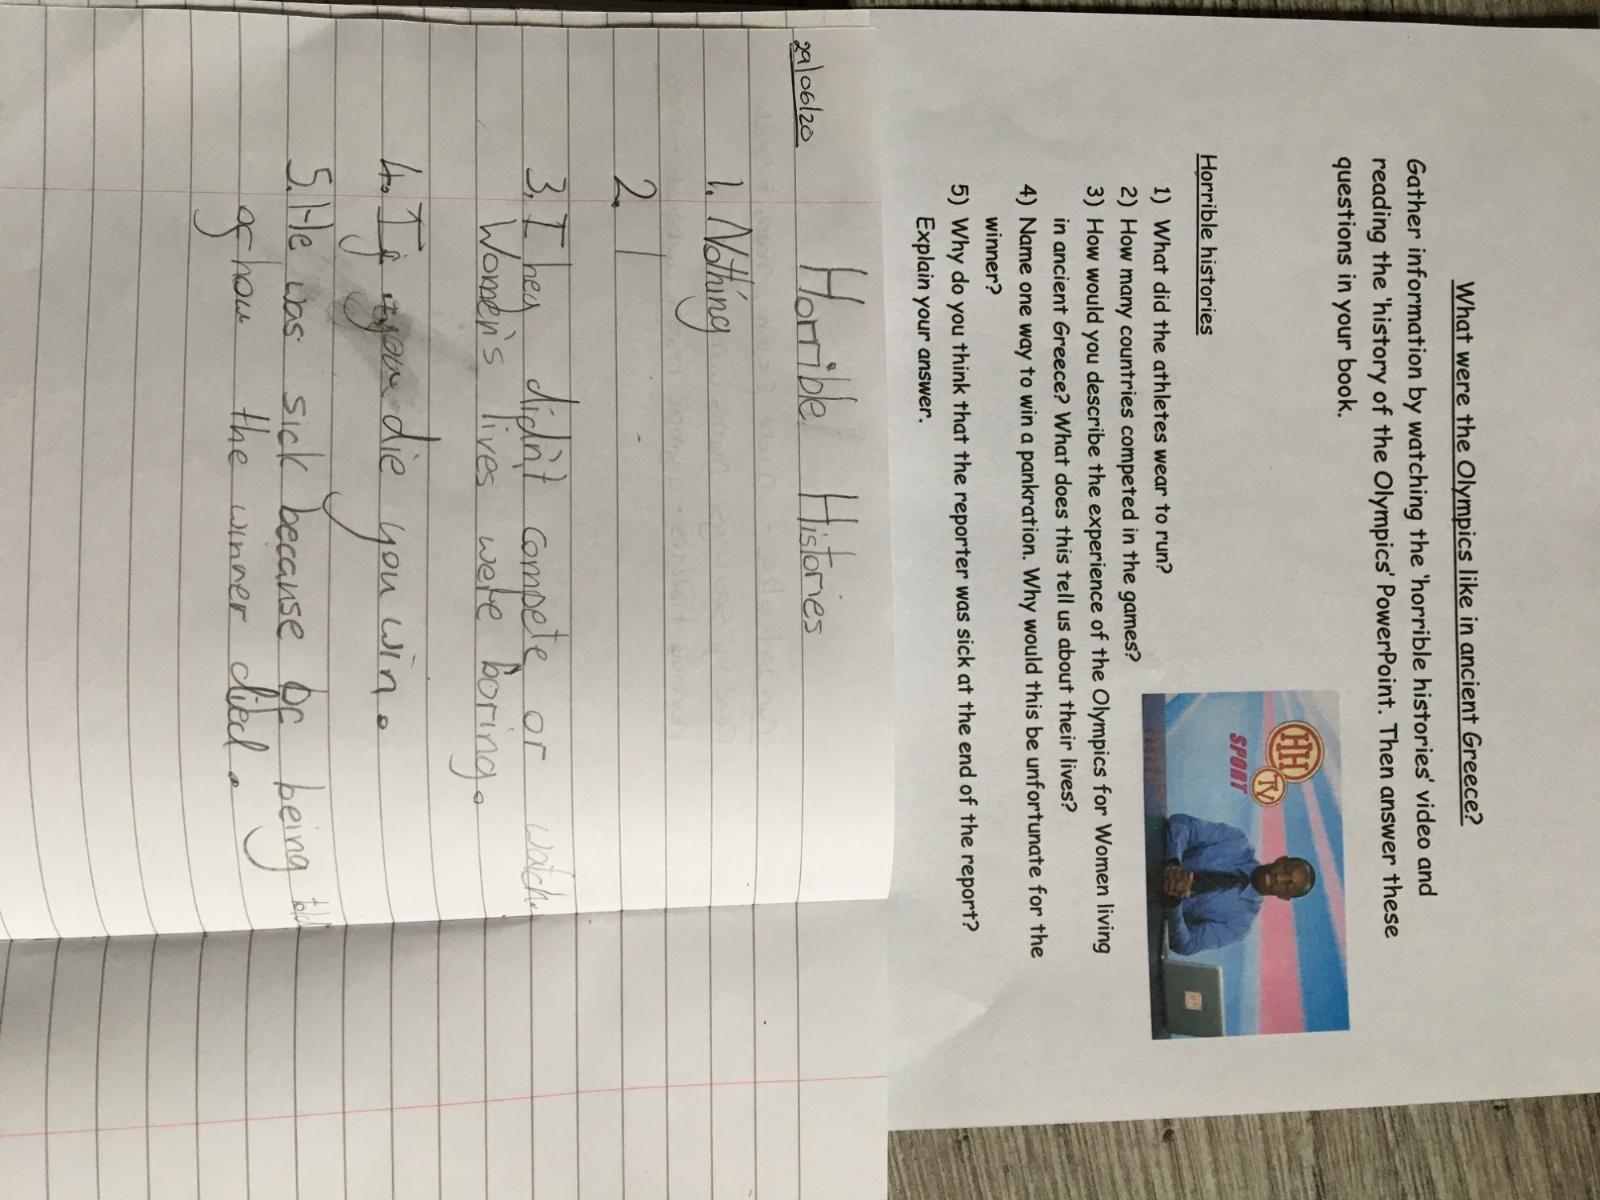 What were the Olympics like in ancient Greece?
Gather information by watching the 'horrible histories' video and
reading the 'history of the Olympics' PowerPoint. Then answer these
questions in your book.
Horrible histories
1) What did the athletes wear to run?
2) How many countries competed in the games?
3) How would you describe the experience of the Olympics for Women living
in ancient Greece? What does this tell us about their lives?
4) Name one way to win a pankration. Why would this be unfortunate for the
winner?
5) Why do you think that the reporter was sick at the end of the report?
Explain your answer.
HH
TV
SPORT
29/06/20
Horrible Histories
1. Nothing
2. 1
3. They didn't compete or watch.
Women's lives were boring.
4. If you die you win.
5. He was sick because of being told
of how the winner died.